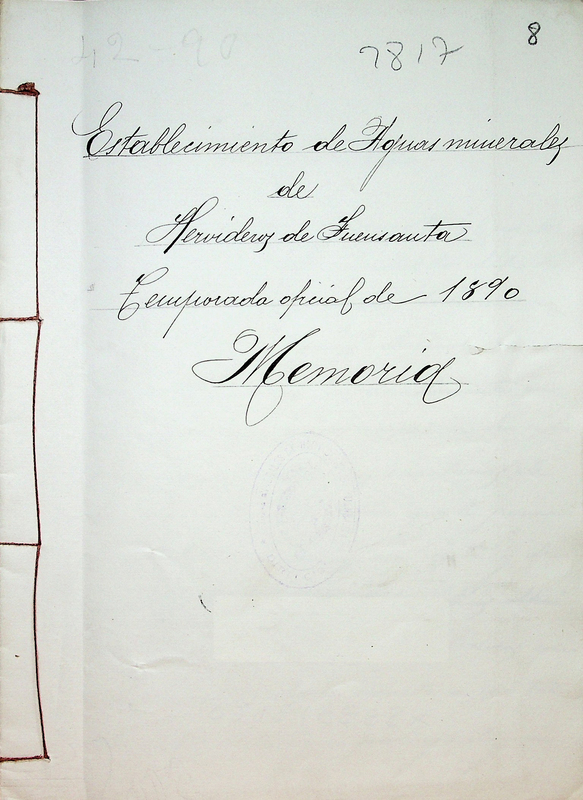 42-90
7817
8
Establecimiento de Aguas minerales
de
Hervideros de Fuensanta
Temporada oficial de 1890
Memoria